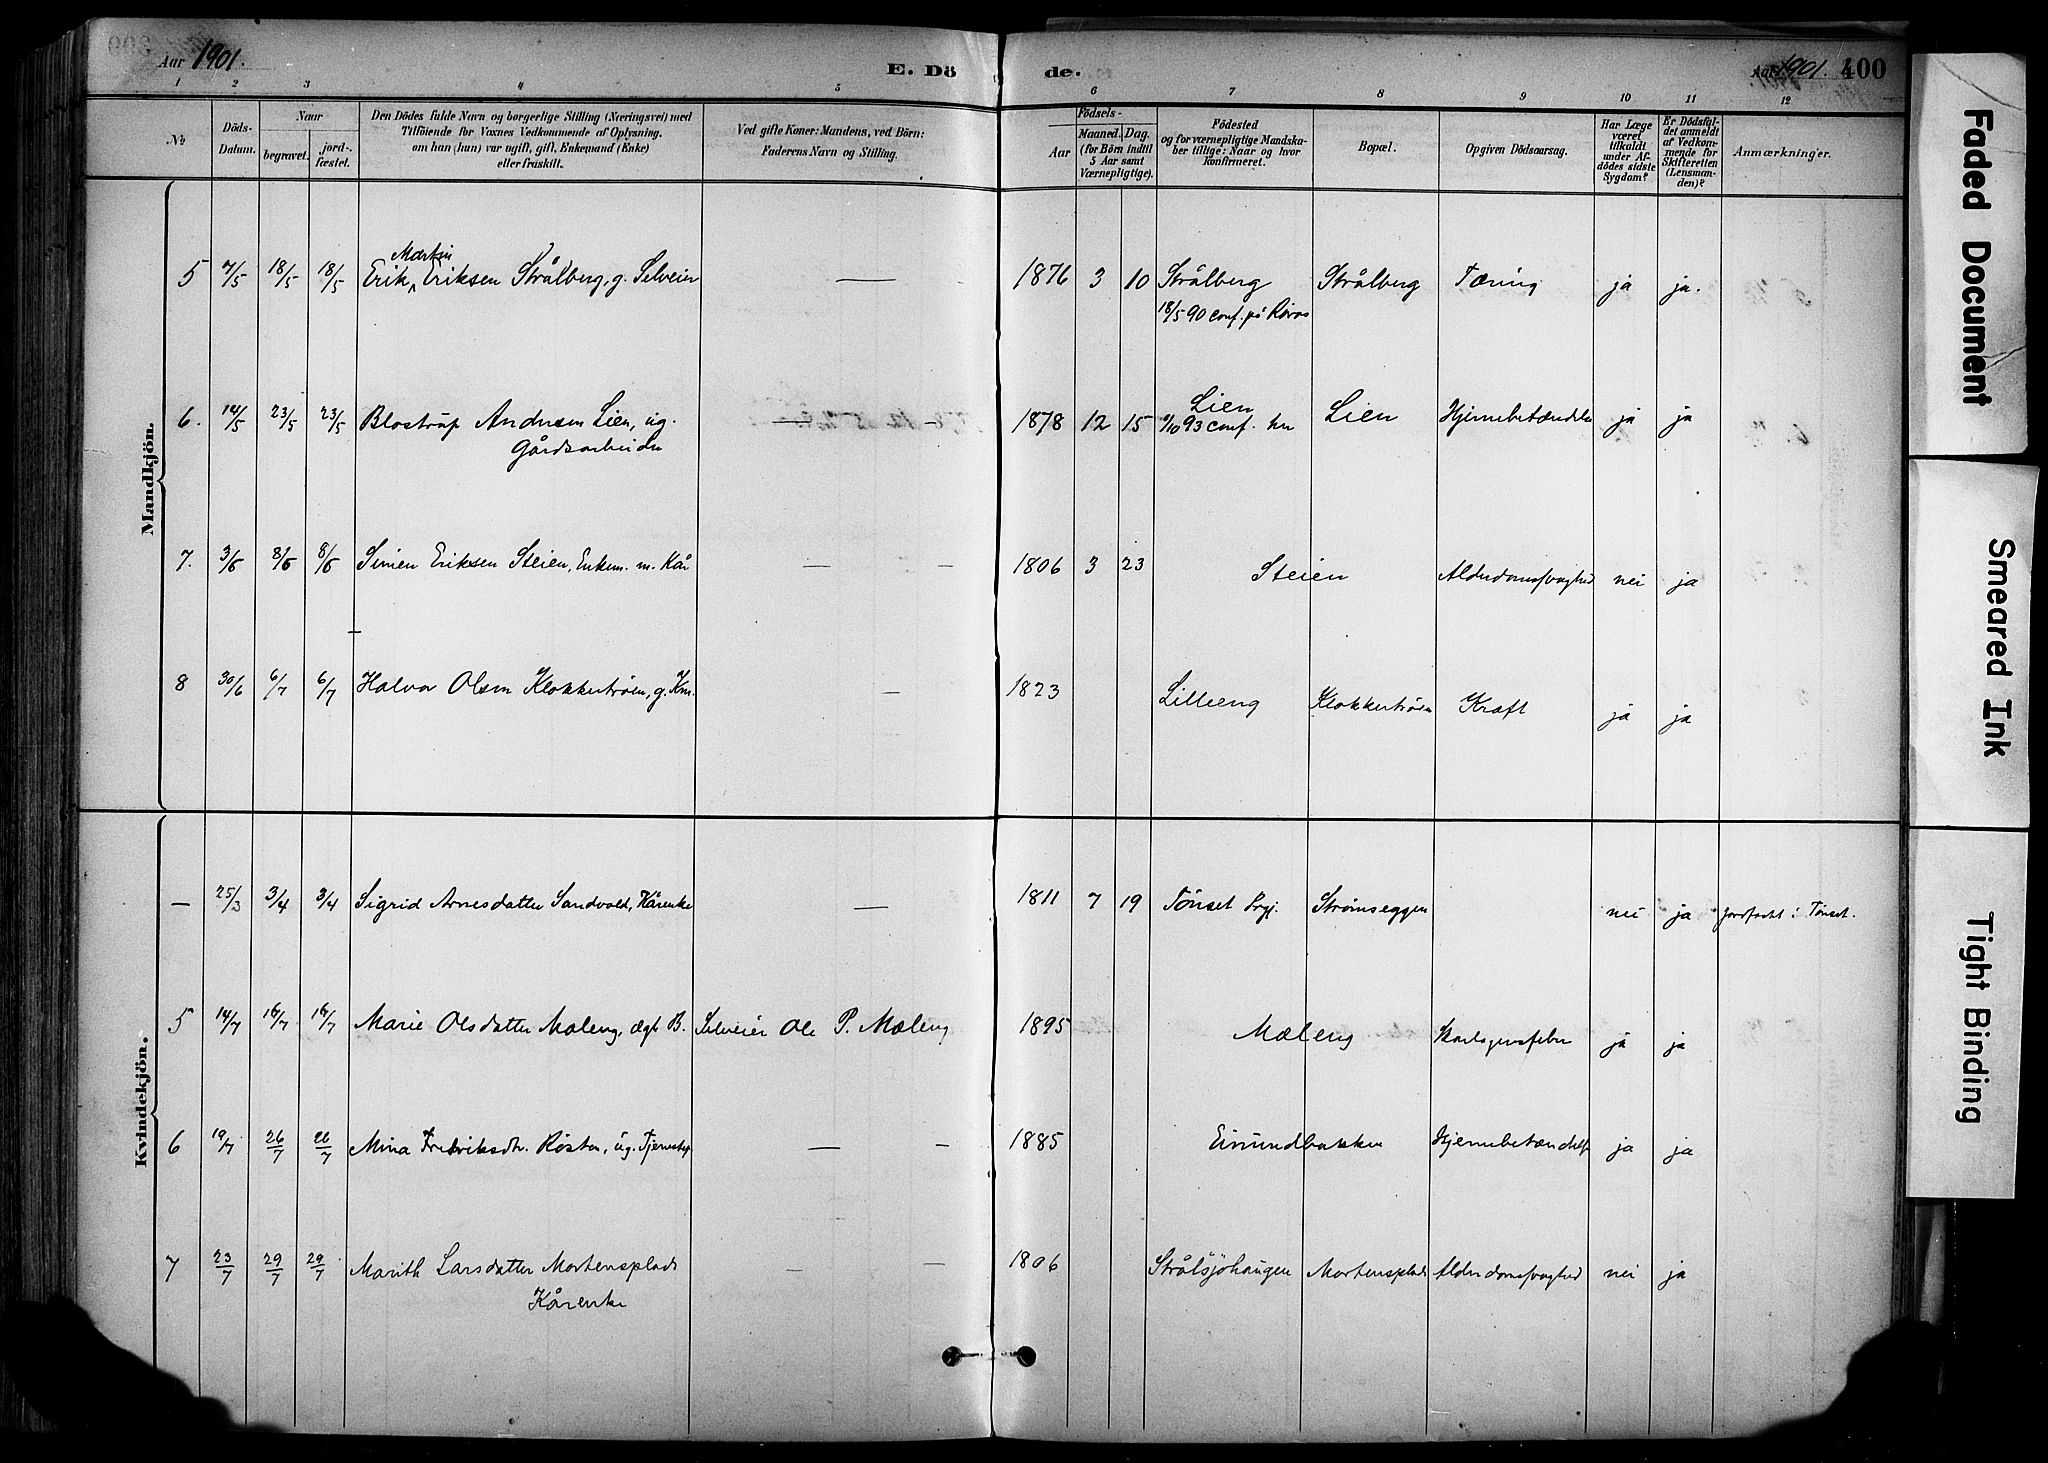 Aar 1901.
E. Döde.
Aar 1901.
400
1 2 3 4 5 6 7 8 9 10 11 12
No
Döds-Datum.
Naar
begravet.
jordfæstet.
Den Dödes fulde Navn og borgerlige Stilling (Næringsvei) med
Tilföiende for Voxnes Vedkommende af Oplysning,
om han (hun) var ugift, gift, Enkemand (Enke)
eller fraskilt.
Ved gifte Koner: Mandens, ved Börn:
Faderens Navn og Stilling.
Födsels-
Aar
Maaned. Dag.
(for Börn indtil
5 Aar samt
Værnepligtige).
Födested
og for værnepligtige Mandskaber tillige: Naar og hvor
konfirmeret.
Bopæl.
Opgiven Dödsaarsag.
Har Læge
været
tilkaldt
under Afdödes sidste
Sygdom?
Er Dödsfaldet anmeldt
af Vedkommende for
Skifteretten
(Lensmanden)?
Anmærkninger.
Mandkjön.
Martin
5 7/5 18/5 18/5 Erik Eriksen Strålberg, g. Selveier — 1876 3 10 Strålberg Strålberg Tæring ja ja.
18/5 90 conf. på Røros
6. 14/5 23/5 23/5 Blostrup Andersen Lien, ug. — — 1878 12 15 Lien Lien Hjernebetændelse ja ja
Gårdsarbeider
/10 93 conf. her
7. 3/6 8/6 8/6 Simen Eriksen Steien, Enkem. m. Kår — — 1806 3 23 Steien Alderdomssvaghed nei ja
8 30/6 6/7 6/7 Halvor Olsen Klokkertrøen, g. — 1823 Lilleeng Klokkertrøen Kræft ja ja
Kvindekjön.
— 25/3 3/4 3/4 Sigrid Arnesdatter Sandvold, Kårenke — 1811 7 19 Tønset Prgj. Strømseggen nei ja jordfæstet i Tønset.
5 14/7 16/7 16/7 Marie Olsdatter Mæleng, ægt B. Selveier Ole P. Mæleng 1895 Mæleng Skarlagensfeber ja ja
6 19/7 26/7 26/7 Mina Fredriksdtr. Røsten, ug. — — 1885 Einundbakken Hjernebetændelse ja ja
7 23/7 29/7 29/7 Marith Larsdatter Mortensplads — — 1806 Strålsjøhaugen Mortensplads Alderdomssvaghed nei ja
Kårenke
Faded Document
Smeared Ink
Tight Binding